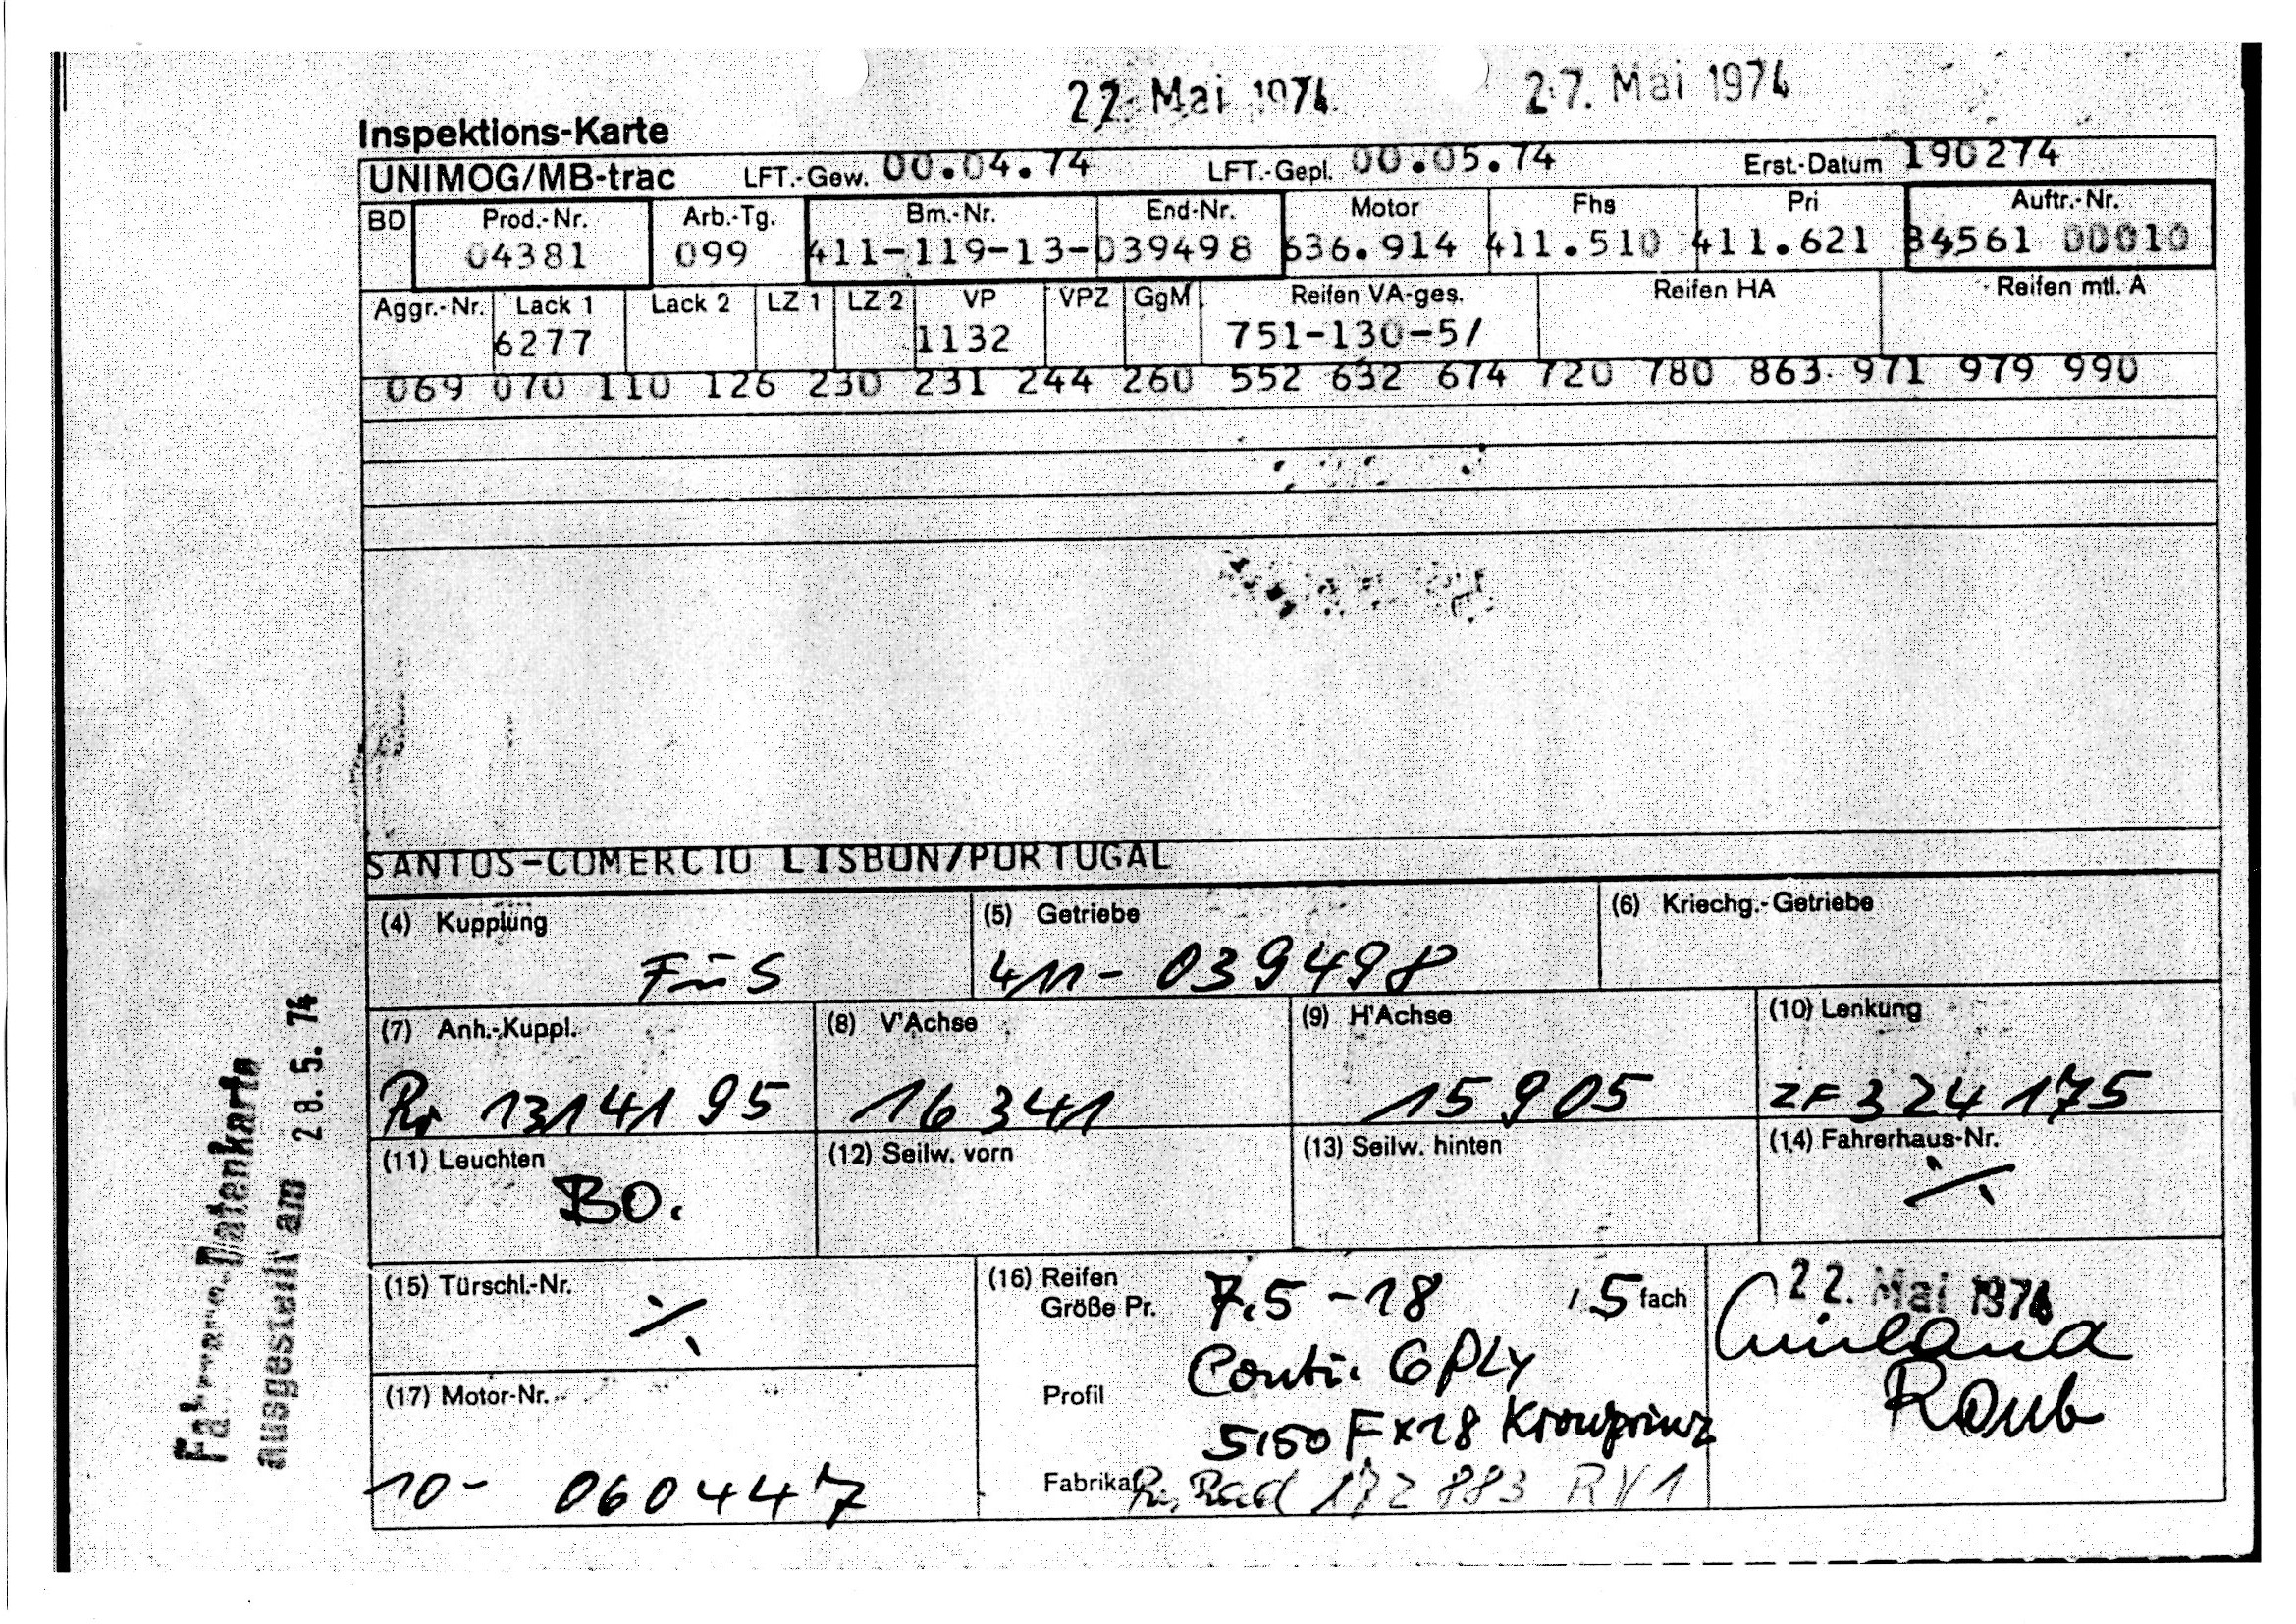 22. Mai 1974 27. Mai 1974
Inspektions-Karte
UNIMOG/MB-trac LFT.-Gew. 00.04.74 LFT.-Gepl. 00.05.74 Erst.-Datum 190274
BD Prod.-Nr. Arb.-Tg. Bm.-Nr. End-Nr. Motor Fhs Pri Auftr.-Nr.
04381 099 411-119-13-039498 636.914 411.510 411.621 84561 00010
Aggr.-Nr. Lack 1 Lack 2 LZ 1 LZ 2 VP VPZ GgM Reifen VA-ges. Reifen HA Reifen mtl. A
6277 1132 751-130-5/
069 070 110 126 230 231 244 260 552 632 674 720 780 863 971 979 990
SANTOS-COMERCIO LISBON/PORTUGAL
(4) Kupplung (5) Getriebe (6) Kriechg.-Getriebe
F&S 411-039498
(7) Anh.-Kuppl. (8) V'Achse (9) H'Achse (10) Lenkung
Ri 1314195 16341 15905 ZF 324175
(11) Leuchten (12) Seilw. vorn (13) Seilw. hinten (14) Fahrerhaus-Nr.
BO. ./.
(15) Türschl.-Nr. (16) Reifen
Größe Pr. 7.5-18 5 fach 22. Mai 1974
./.
Conti. 6 PLY
(17) Motor-Nr. Profil Raub
5.50 F x 18 Kronprinz
10- 060447 Fabrikat Rad 172 883 RV1
Datenkarte
ausgestellt am 28.5.74